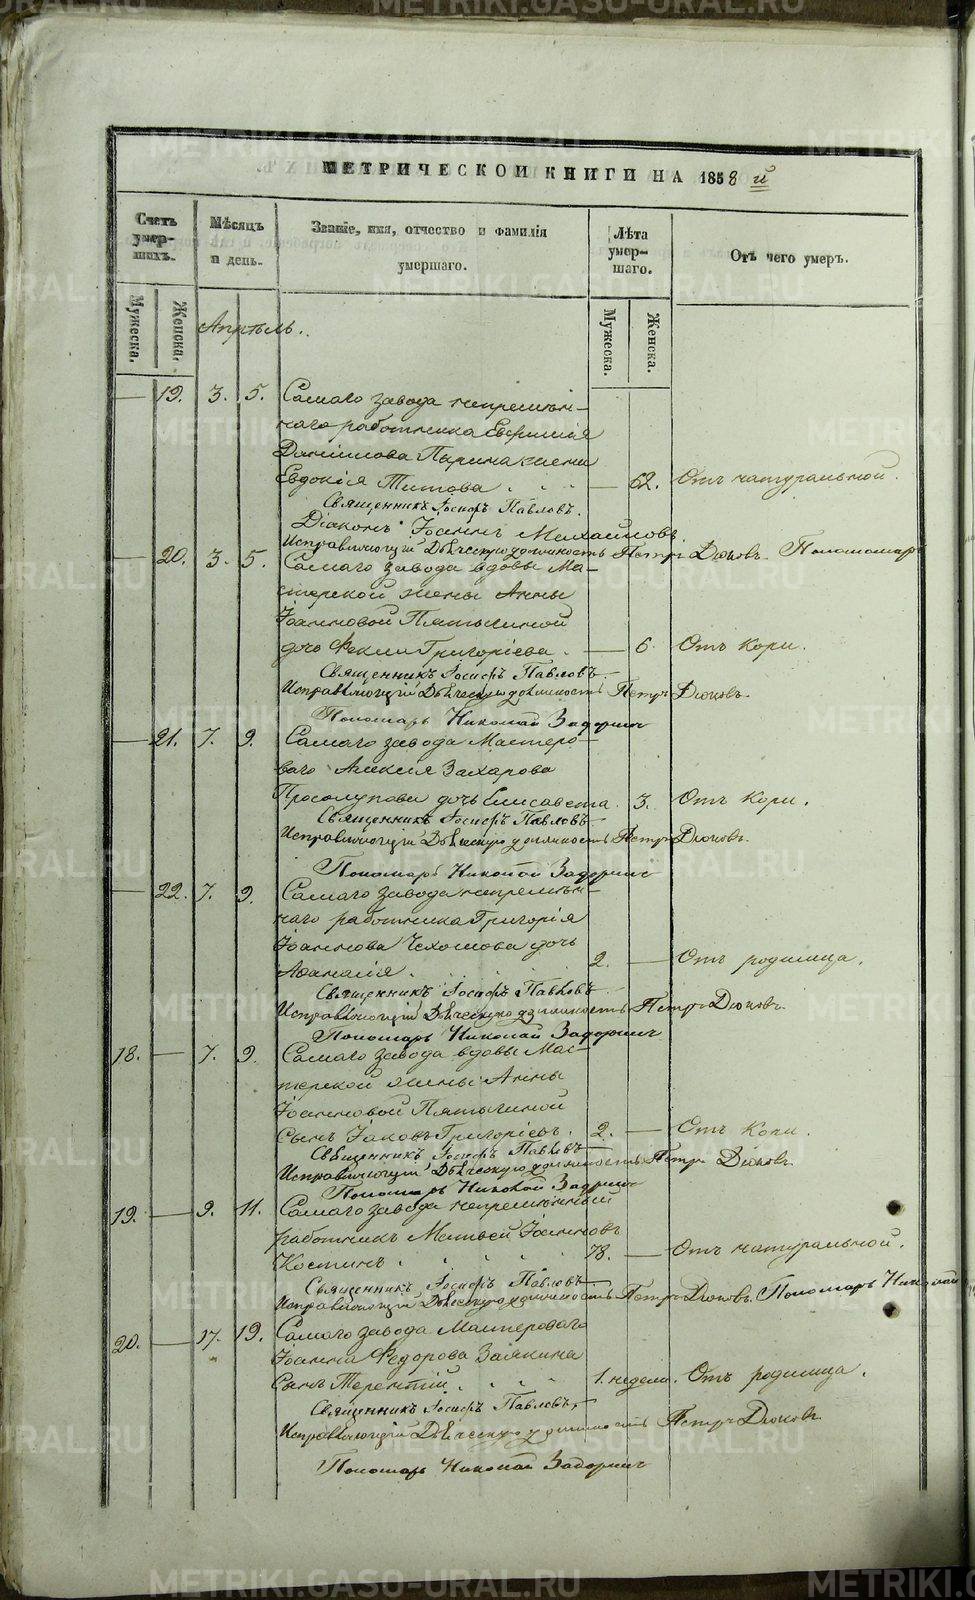 МЕТРИЧЕСКОЙ КНИГИ НА 1858 й
Счетъ умер-шихъ.
Мѣсяцъ и день.
Званіе, имя, отчество и фамилія умершаго.
Лѣта умер-шаго.
Отъ чего умеръ.
Мужеска.
Женска.
Мужеска.
Женска.
Апрѣль.
— 19. 3. 5. Самаго завода непремѣн-
наго работника Евфимія
Даніилова Ларина жена
Евдокія Титова — 62. Отъ натуральной.
Священникъ Іосифъ Павловъ.
Діаконъ Іоаннъ Михайловъ.
Исправляющій Дьяческую должность Петръ Дюковъ. Пономарь
— 20. 3. 5. Самаго завода вдовы Ма-
стерской жены Анны
Іоанновой Пятыгиной
дочь Фекла Григоріева. — 6. Отъ Кори.
Священникъ Іосифъ Павловъ
Исправляющій Дьяческую должность Петръ Дюковъ.
Пономарь Николай Задоринъ
— 21. 7. 9. Самаго завода Мастеро-
ваго Алексія Захарова
Просолупова дочь Елисавета. 3. Отъ Кори.
Священникъ Іосифъ Павловъ
Исправляющій Дьяческую должность Петръ Дюковъ.
Пономарь Николай Задоринъ
— 22. 7. 9. Самаго завода непремѣн-
наго работника Григорія
Іоаннова дочь
Афанасія. 2. — Отъ родимца.
Священникъ Іосифъ Павловъ
Исправляющій Дьяческую должность Петръ Дюковъ.
Пономарь Николай Задоринъ
18. — 7. 9. Самаго завода вдовы Мас-
терской жены Анны
Іоанновой Пятыгиной
Сынъ Іаковъ Григоріевъ. 2. — Отъ Кори.
Священникъ Іосифъ Павловъ
Исправляющій Дьяческую должность Петръ Дюковъ.
Пономарь Николай Задоринъ
19. — 9. 11. Самаго завода непремѣнный
работникъ Матвей Іоанновъ
Костинъ 78. — Отъ натуральной.
Священникъ Іосифъ Павловъ
Исправляющій Дьяческую должность Петръ Дюковъ. Пономарь Николай
20. — 17. 19. Самаго завода Мастероваго
Іоанна Федорова Заякина
Сынъ Терентій 1. недели. Отъ родимца.
Священникъ Іосифъ Павловъ.
Исправляющій Дьяческую должность Петръ Дюковъ.
Пономарь Николай Задоринъ
METRIKI.GASO-URAL.RU